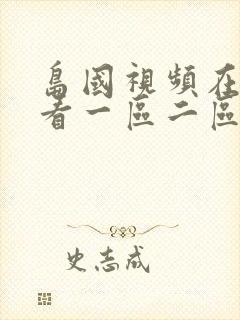 島國視頻在
看一區二區
史志成